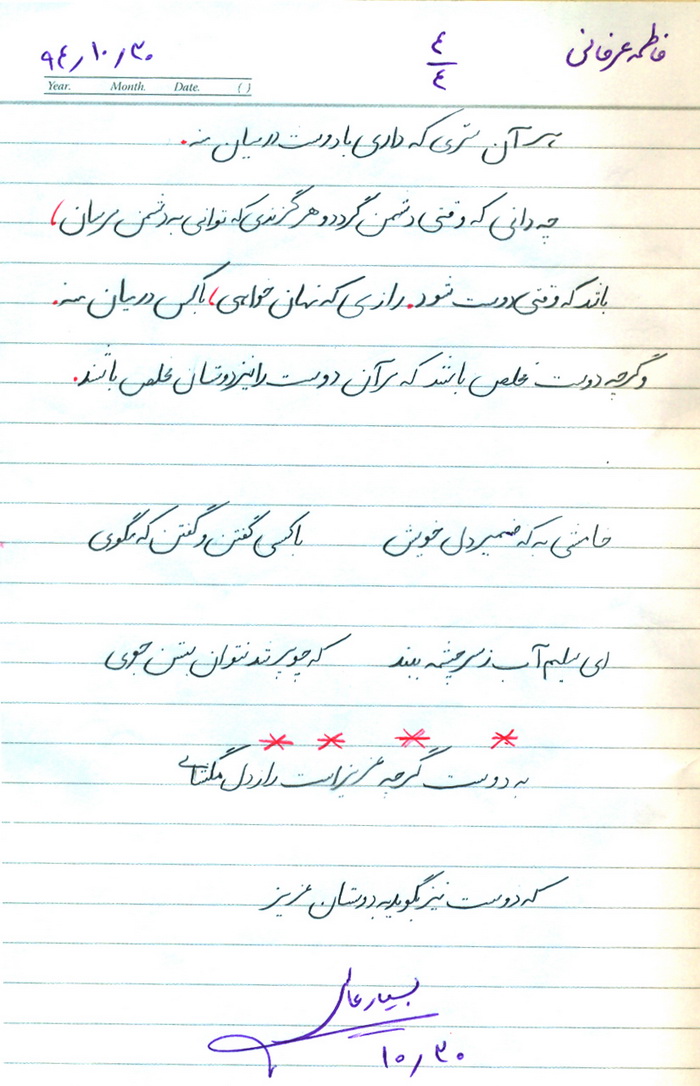 فاطمه عرفانی
۴
۴
۹۴/۱۰/۳۰
Year. Month. Date. ( )
هر آن سری که داری با دوست در میان منه.
چه دانی که وقتی دشمن گردد و هر گزندی که توانی به دشمن مرسان،
باشد که وقتی دوست شود. رازی که نهان خواهی، با کس در میان منه.
وگرچه دوست مخلص باشد که مر آن دوست را نیز دوستان مخلص باشند.
خامشی به که ضمیر دل خویش با کسی گفتن و گفتن که مگوی
ای سلیم آب ز سر چشمه ببند که چو پر شد نتوان بستن جوی
به دوست گرچه عزیز است راز دل مگشای
که دوست نیز بگوید به دوستان عزیز
بسیار عالی
۱۰/۳۰